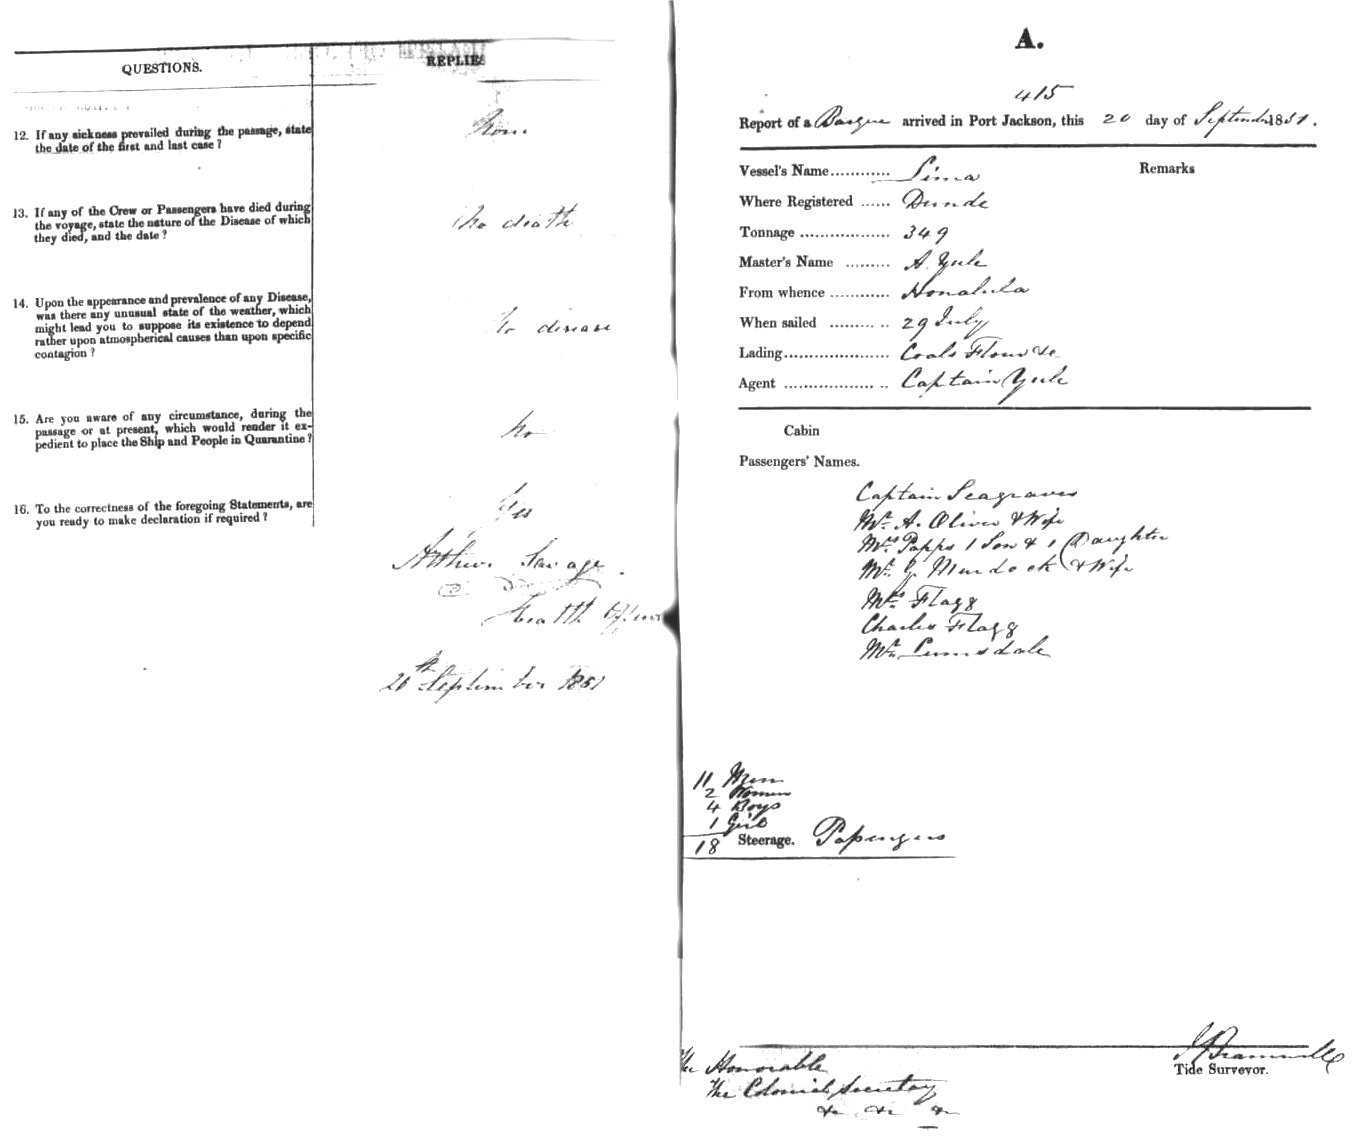 QUESTIONS.
REPLIES
12. If any sickness prevailed during the passage, state
the date of the first and last case ?
None
13. If any of the Crew or Passengers have died during
the voyage, state the nature of the Disease of which
they died, and the date ?
No death
14. Upon the appearance and prevalence of any Disease,
was there any unusual state of the weather, which
might lead you to suppose its existence to depend
rather upon atmospherical causes than upon specific
contagion ?
No disease
15. Are you aware of any circumstance, during the
passage or at present, which would render it ex-
pedient to place the Ship and People in Quarantine ?
No
16. To the correctness of the foregoing Statements, are
you ready to make declaration if required ?
Yes
Arthur Savage.
Health Officer
20th September 1851
A.
415
Report of a Barque arrived in Port Jackson, this 20 day of September 1851.
Vessel's Name............ Lima
Remarks
Where Registered ...... Dunde
Tonnage .................. 349
Master's Name ......... A. Yule
From whence ............ Honalula
When sailed ......... .. 29 July
Lading..................... Coals Flour &c
Agent .................. .. Captain Yule
Cabin
Passengers' Names.
Captain Seagraves
Mr. A. Oliver & Wife
Mrs. Papps 1 Son & 1 Daughter
Mr. J. Murdock & Wife
Mrs. Flagg
Charles Flagg
Mr. Lumsdale
11 Men
2 Women
4 Boys
1 Girl
18 Steerage. Passengers
J Bramwell
Tide Surveyor.
The Honorable
The Colonial Secretary
&c &c &c